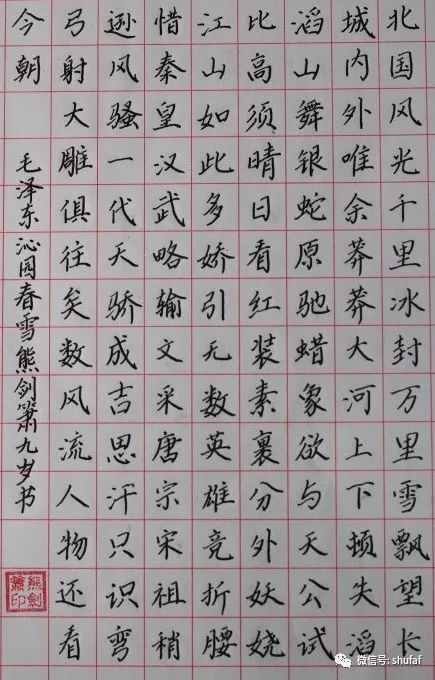 北国风光千里冰封万里雪飘望长
城内外唯余莽莽大河上下顿失滔
滔山舞银蛇原驰蜡象欲与天公试
比高须晴日看红装素裹分外妖娆
江山如此多娇引无数英雄竞折腰
惜秦皇汉武略输文采唐宗宋祖稍
逊风骚一代天骄成吉思汗只识弯
弓射大雕俱往矣数风流人物还看
今朝
毛泽东沁园春雪熊剑箫九岁书
熊劍
簫印
微信号: shufaf